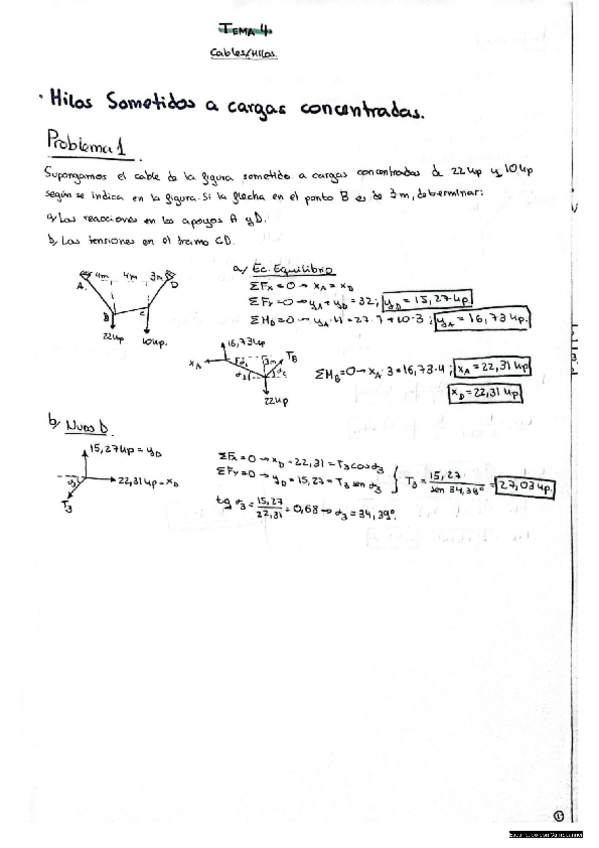 TEMA 4.
Cables/Hilos.
· Hilos Sometidos a cargas concentradas.
Problema 1.
Supongamos el cable de la figura sometido a cargas concentradas de 22 Kp y 10 Kp
según se indica en la figura. Si la flecha en el punto B es de 3m, determinar:
a) Las reacciones en los apoyos A y D.
b) Las tensiones en el tramo CD.
a) Ec. Equilibrio
4m 4m 3m
A D
B C
22 Kp 10 Kp
ΣFx=0 → xA = xD
ΣFy=0 → yA + yD = 32; yD = 15,27 Kp
ΣMD=0 → yA·11 = 22·7 + 10·3; yA = 16,73 Kp.
16,73 Kp
xA 3m TB
22 Kp
ΣMB=0 → xA·3 = 16,73·4; xA = 22,31 Kp
xD = 22,31 Kp
b) Nudo D.
15,27 Kp = yD
22,31 Kp = xD
T3
ΣFx=0 → xD = 22,31 = T3 cos α3
ΣFy=0 → yD = 15,27 = T3 sen α3
T3 = 15,27 / sen 34,39° = 27,03 Kp.
tg α3 = 15,27 / 22,31 = 0,68 → α3 = 34,39°.